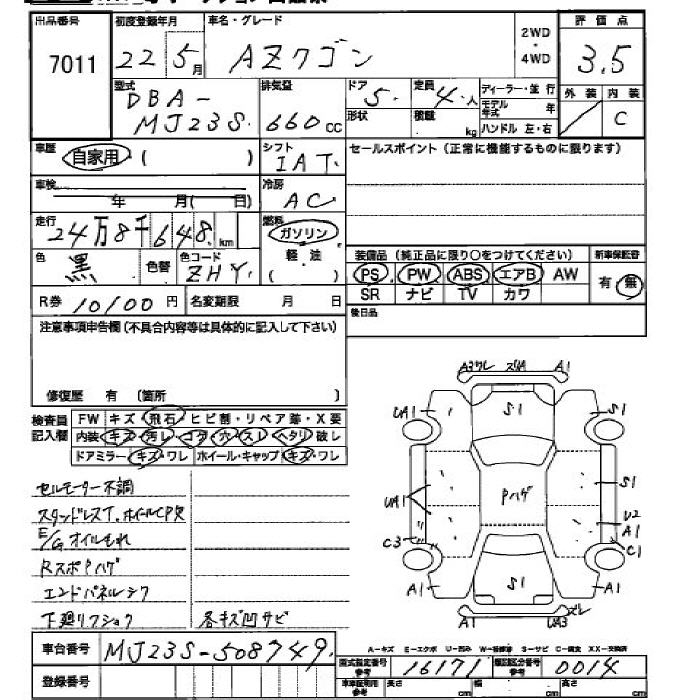 出品番号 初度登録年月 車名・グレード 2WD・4WD 評価点
7011 22 5月 AZワゴン 3.5
型式 排気量 ドア 定員 ディーラー・並行 外装 内装
DBA- 5. 4.人 モデル年式 年
MJ23S. 660cc 形状 積載 kg ハンドル 左・右 C
車歴 自家用 ( ) シフト IAT. セールスポイント(正常に機能するものに限ります)
車検 年 月( 日) 冷房 AC
走行 24万8千648.km 燃料 ガソリン
軽・油
( )
色 黒 色替 色コード ZHY. 装備品(純正品に限り○をつけてください) 新車保証書
PS PW ABS エアB AW 有・無
SR ナビ TV カワ
R券 10100円 名変期限 月 日 後日品
注意事項申告欄(不具合内容等は具体的に記入して下さい)
修復歴 有 (箇所 )
検査員記入欄 FW キズ・飛石・ヒビ割・リペア等・X要
内装 キズ・汚レ・コゲ・穴・スレ・ヘタリ・破レ
ドアミラー キズ・ワレ ホイール・キャップ キズ・ワレ
セルモーター不調
スタッドレスT.ホイールCP欠
E/Gオイルもれ
RスポPハゲ
エンドパネルシワ
下廻リフショク 各キズ凹サビ
A3ワレ ズレA A1
UA1 S1 S1
UA1 Pハゲ S1
U2
A1
C3 C1
A1 S1 A1
A1 UA3 ズレ
車台番号 MJ23S-508749.
登録番号
A-キズ E-エクボ U-凹み W-板修跡 S-サビ C-腐食 XX-交換済
型式指定番号 参考 16171 類別区分番号 参考 0014
車車証明用 参考 長さ cm 幅 cm 高さ cm